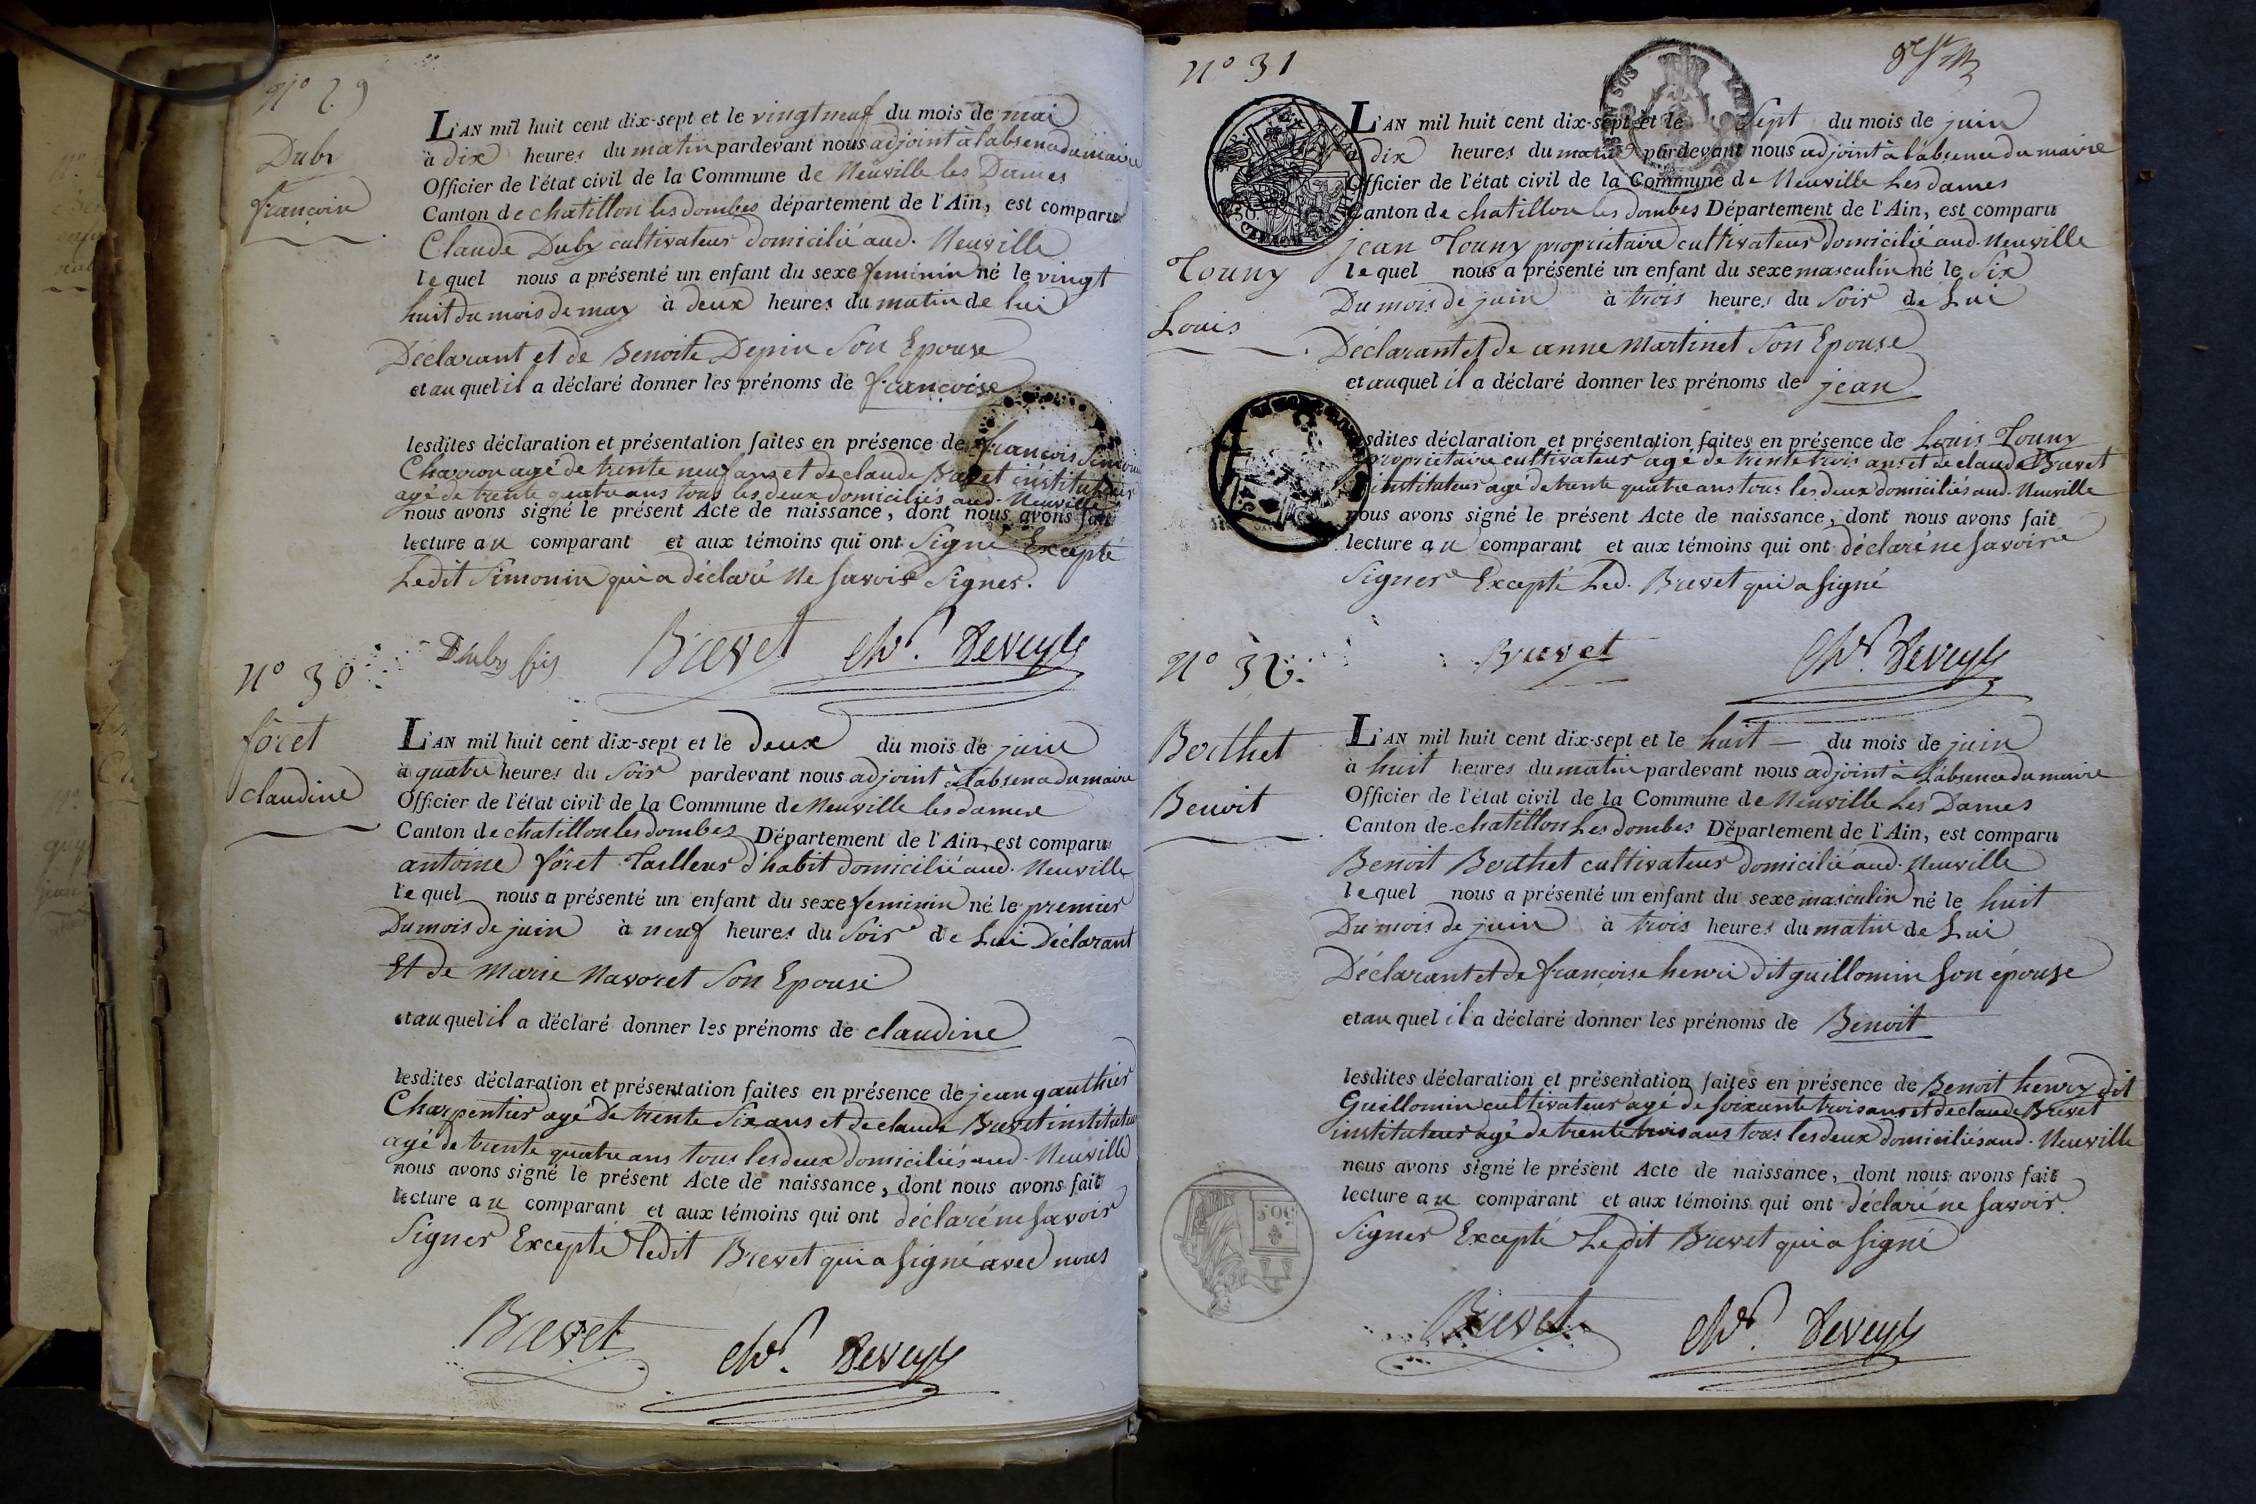 N° 29
Duby
françoise
L'AN mil huit cent dix-sept et le vingt neuf du mois de mai
à dix heures du matin pardevant nous adjoint à l'absence du maire
Officier de l'état civil de la Commune de Neuville les Dames
Canton de chatillon les dombes département de l'Ain, est comparu
Claude Duby cultivateur domicilié aud. Neuville
lequel nous a présenté un enfant du sexe feminin né le vingt
huit du mois de may à deux heures du matin de lui
Déclarant et de Benoite Depin Son Epouse
et auquel il a déclaré donner les prénoms de françoise
lesdites déclaration et présentation faites en présence de françois Simonin
agé de trente neuf ans et de claude Brevet instituteur
agé de trente quatre ans tous les deux domiciliés aud. Neuville
nous avons signé le présent Acte de naissance, dont nous avons fait
lecture au comparant et aux témoins qui ont Signé Excepté
Ledit Simonin qui a déclaré Ne Savoir Signer.
Duby fis Brevet chr. Deveyle
N° 30
fôret
claudine
L'AN mil huit cent dix-sept et le deux du mois de juin
à quatre heures du Soir pardevant nous adjoint à l'absence du maire
Officier de l'état civil de la Commune de Neuville les dames
Canton de chatillon les dombes Département de l'Ain, est comparu
antoine fôret tailleur d'habit domicilié aud. Neuville
lequel nous a présenté un enfant du sexe feminin né le premier
Du mois de juin à neuf heures du Soir de Lui Déclarant
Et de Marie Navoret Son Epouse
et auquel il a déclaré donner les prénoms de claudine
lesdites déclaration et présentation faites en présence de jean gauthier
Charpentier agé de trente Six ans et de claude Brevet instituteur
agé de trente quatre ans tous les deux domiciliés aud. Neuville
nous avons signé le présent Acte de naissance, dont nous avons fait
lecture au comparant et aux témoins qui ont déclaré ne Savoir
Signer Excepté ledit Brevet qui a Signé avec nous
Brevet chr. Deveyle
N° 31
Touny
Louis
L'AN mil huit cent dix-sept et le Sept du mois de juin
dix heures du matin pardevant nous adjoint à l'absence du maire
Officier de l'état civil de la Commune de Neuville Les dames
Canton de chatillon les dombes Département de l'Ain, est comparu
jean Touny propriétaire cultivateur domicilié aud. Neuville
lequel nous a présenté un enfant du sexe masculin né le Six
Du mois de juin à trois heures du Soir de Lui
Déclarant et de anne Martinet Son Epouse
et auquel il a déclaré donner les prénoms de jean
lesdites déclaration et présentation faites en présence de Louis Touny
propriétaire cultivateur agé de trente trois ans et de claude Brevet
instituteur agé de trente quatre ans tous les deux domiciliés aud. Neuville
nous avons signé le présent Acte de naissance, dont nous avons fait
lecture au comparant et aux témoins qui ont déclaré ne Savoir
Signer Excepté Led. Brevet qui a Signé
Brevet chr. Deveyle
N° 32
Berthet
Benoit
L'AN mil huit cent dix-sept et le huit du mois de juin
à huit heures du matin pardevant nous adjoint à l'absence du maire
Officier de l'état civil de la Commune de Neuville Les Dames
Canton de chatillon Les dombes Département de l'Ain, est comparu
Benoit Berthet cultivateur domicilié aud. Neuville
lequel nous a présenté un enfant du sexe masculin né le huit
Du mois de juin à trois heures du matin de Lui
Déclarant et de françoise henri dit guillomin Son épouse
et auquel il a déclaré donner les prénoms de Benoit
lesdites déclaration et présentation faites en présence de Benoit henry dit
Guillomin cultivateur agé de soixante trois ans et de claude Brevet
instituteur agé de trente trois ans tous les deux domiciliés aud. Neuville
nous avons signé le présent Acte de naissance, dont nous avons fait
lecture au comparant et aux témoins qui ont déclaré ne Savoir
Signer Excepté Ledit Brevet qui a Signé
50c
Brevet chr. Deveyle